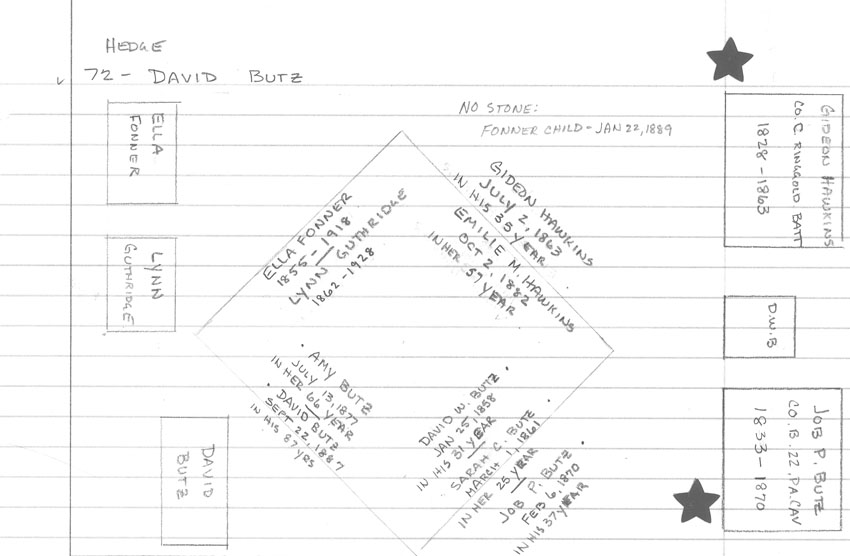 HEDGE
72 - DAVID BUTZ
NO STONE:
FONNER CHILD - JAN 22, 1889
ELLA
FONNER
LYNN
GUTHRIDGE
DAVID
BUTZ
ELLA FONNER
1855 - 1918
LYNN GUTHRIDGE
1862 - 1928
GIDEON HAWKINS
JULY 2, 1863
IN HIS 35 YEAR
EMILIE M. HAWKINS
OCT 2, 1882
IN HER 57 YEAR
AMY BUTZ
JULY 13, 1877
IN HER 66 YEAR
DAVID BUTZ
SEPT 22, 1887
IN HIS 87 YRS
DAVID W. BUTZ
JAN 25, 1858
IN HIS 31 YEAR
SARAH C. BUTZ
MARCH 1, 1861
IN HER 25 YEAR
JOB P. BUTZ
FEB 6, 1870
IN HIS 37 YEAR
GIDEON HAWKINS
CO. C. RINGGOLD BATT
1828 - 1863
D.W.B
JOB P. BUTZ
CO. B. 22, PA. CAV
1833 - 1870